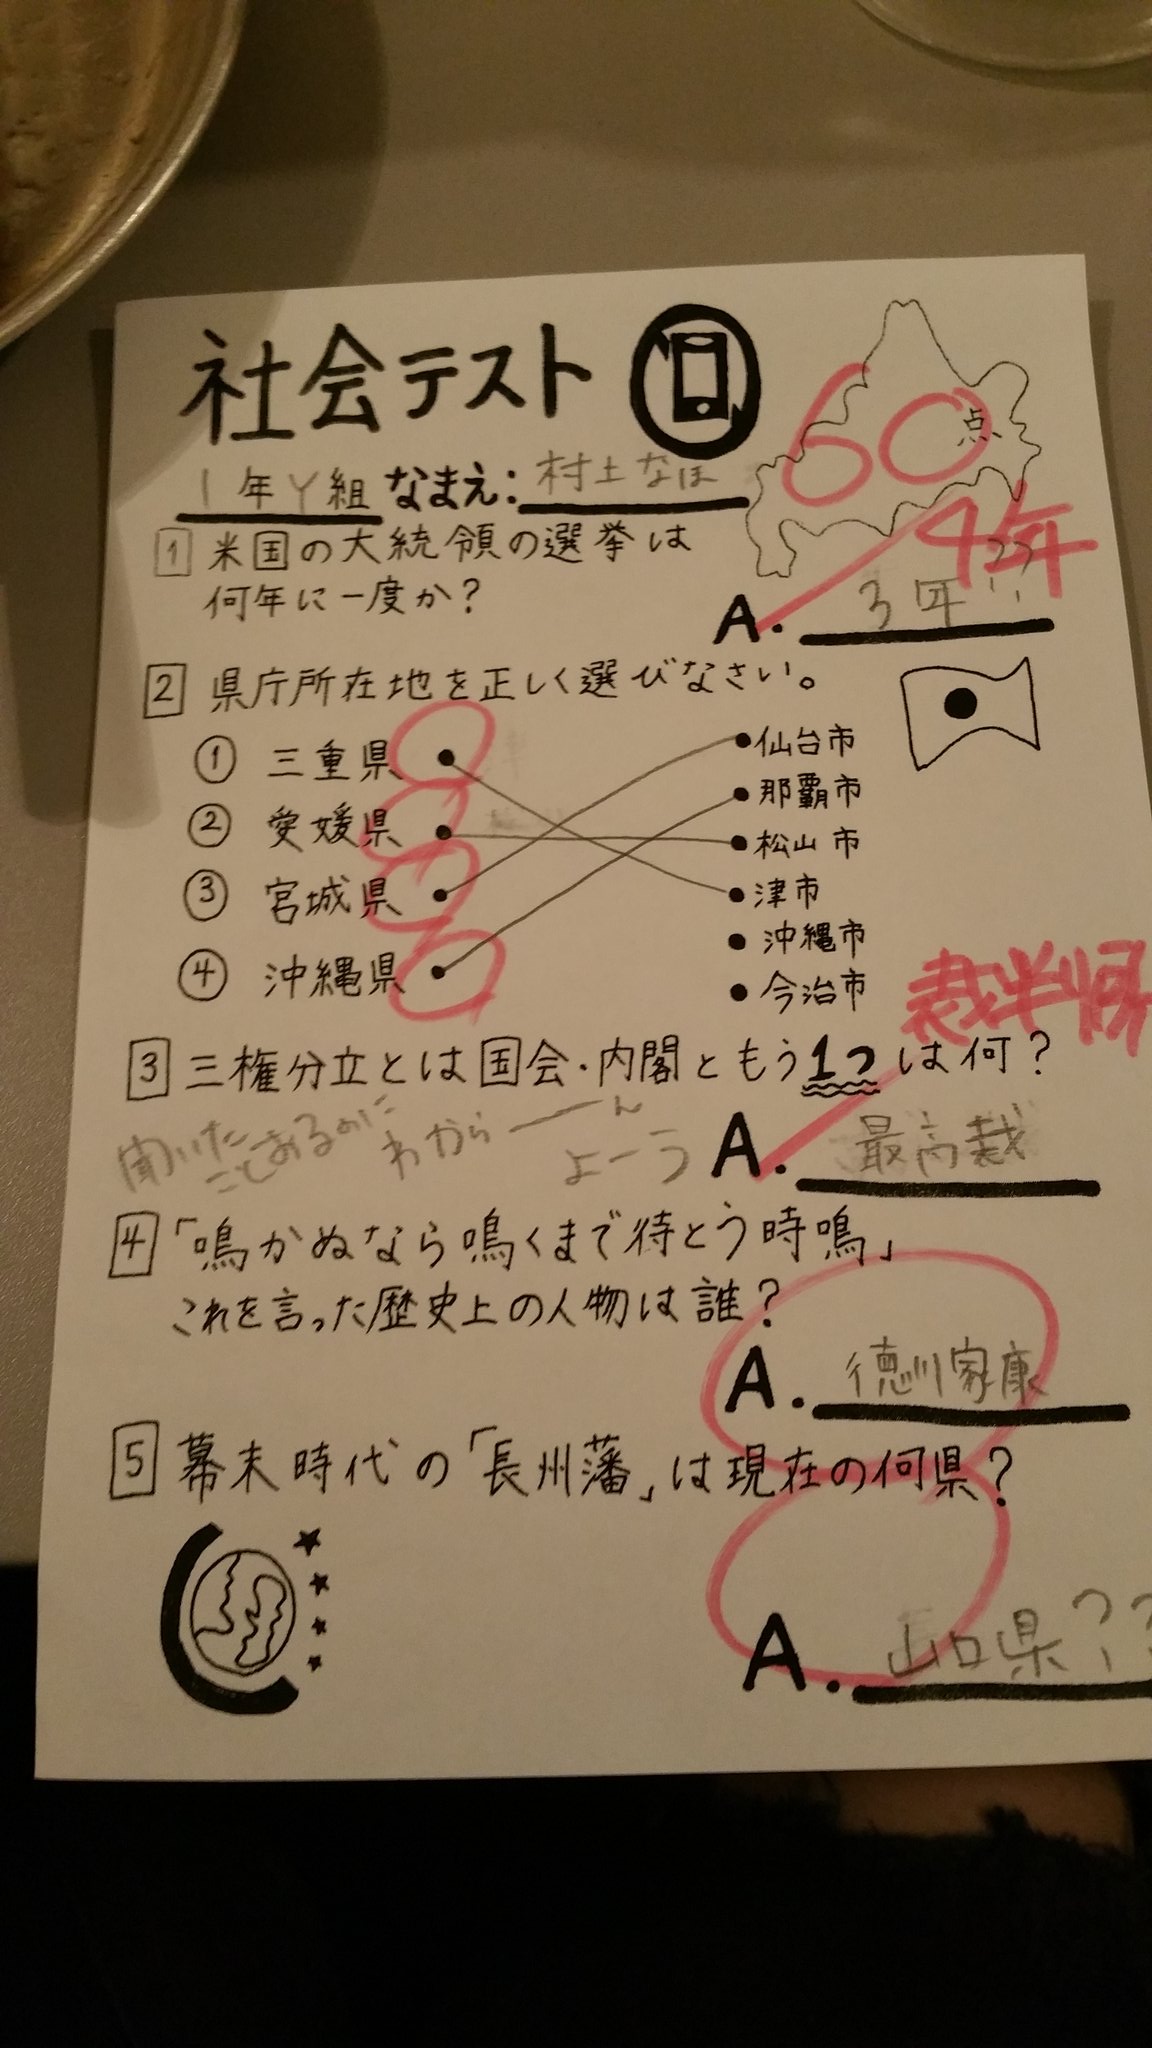 社会テスト
60点
1年Y組 なまえ: 村土なほ
1 米国の大統領の選挙は
何年に一度か?
4年
A. 3年??
2 県庁所在地を正しく選びなさい。
① 三重県
② 愛媛県
③ 宮城県
④ 沖縄県
仙台市
那覇市
松山市
津市
沖縄市
今治市
3 三権分立とは国会・内閣ともう1つは何?
裁判所
聞いた
ことあるのに
わからーーん
よーう
A. 最高裁
4 「鳴かぬなら鳴くまで待とう時鳴」
これを言った歴史上の人物は誰?
A. 徳川家康
5 幕末時代の「長州藩」は現在の何県?
A. 山口県??